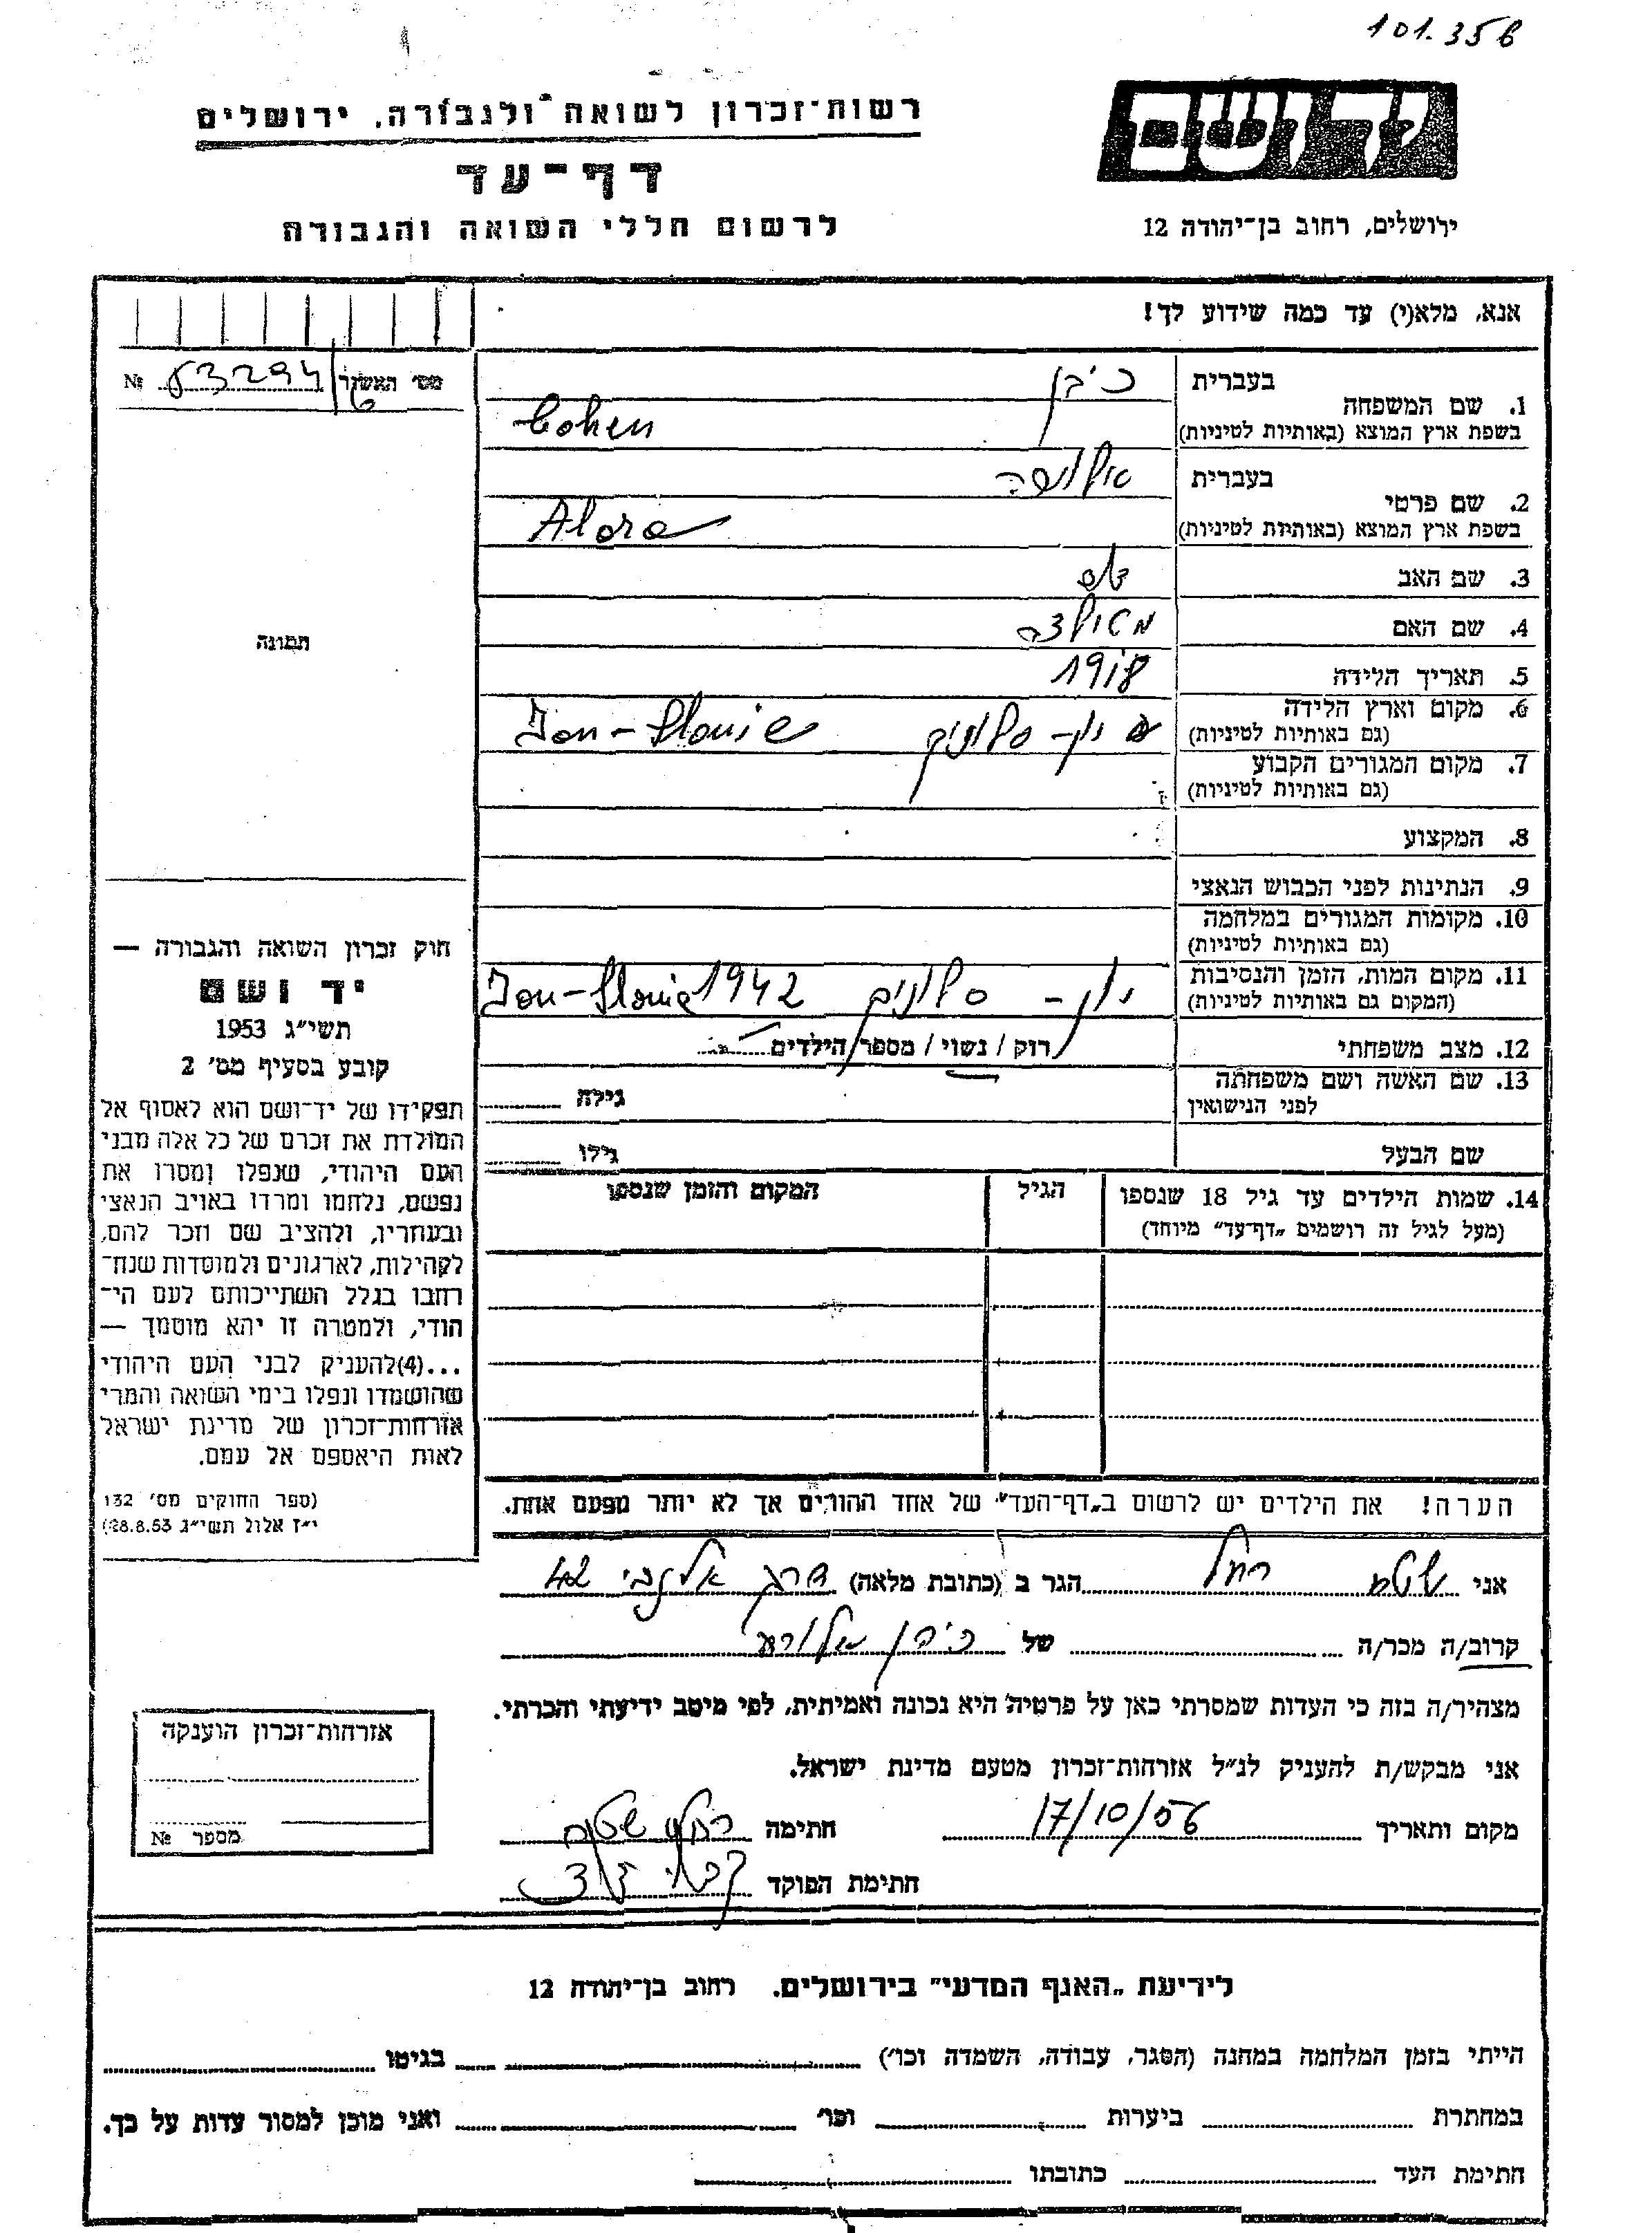 101.356
רשות־זכרון לשואה ולגבורה, ירושלים
דף־עד
לרשום חללי השואה והגבורה
יד ושם
ירושלים, רחוב בן־יהודה 12
אנא, מלא(י) עד כמה שידוע לך!
מס׳ האשור № 53294
1. שם המשפחה
בעברית כהן
בשפת ארץ המוצא (באותיות לטיניות) Cohen
2. שם פרטי
בעברית
בשפת ארץ המוצא (באותיות לטיניות)
3. שם האב
4. שם האם
5. תאריך הלידה 1918
6. מקום וארץ הלידה
(גם באותיות לטיניות) יון - סלוניקי
7. מקום המגורים הקבוע
(גם באותיות לטיניות)
8. המקצוע
9. הנתינות לפני הכבוש הנאצי
10. מקומות המגורים במלחמה
(גם באותיות לטיניות)
11. מקום המות, הזמן והנסיבות
(המקום גם באותיות לטיניות) יון - סלוניקי 1942
12. מצב משפחתי רווק / נשוי / מספר הילדים
13. שם האשה ושם משפחתה
לפני הנישואין גילה
שם הבעל גילו
14. שמות הילדים עד גיל 18 שנספו
(מעל לגיל זה רושמים „דף־עד” מיוחד)
הגיל
המקום והזמן שנספו
הערה! את הילדים יש לרשום ב„דף־העד” של אחד ההורים אך לא יותר מפעם אחת.
תמונה
חוק זכרון השואה והגבורה —
יד ושם
תשי״ג 1953
קובע בסעיף מס׳ 2
תפקידו של יד־ושם הוא לאסוף אל
המולדת את זכרם של כל אלה מבני
העם היהודי, שנפלו ומסרו את
נפשם, נלחמו ומרדו באויב הנאצי
ובעוזריו, ולהציב שם וזכר להם,
לקהילות, לארגונים ולמוסדות שנח־
רחבו בגלל השתייכותם לעם הי־
הודי, ולמטרה זו יהא מוסמך —
...(4)להעניק לבני העם היהודי
שהושמדו ונפלו בימי השואה והמרי
אזרחות־זכרון של מדינת ישראל
לאות היאספם אל עמם.
(ספר החוקים מס׳ 132
י״ז אלול תשי״ג 28.8.53)
אני רחל הגר ב (כתובת מלאה) דרך אלנבי 42
קרוב/ה מכר/ה של כהן
מצהיר/ה בזה כי העדות שמסרתי כאן על פרטיה היא נכונה ואמיתית, לפי מיטב ידיעתי והכרתי.
אני מבקש/ת להעניק לנ״ל אזרחות־זכרון מטעם מדינת ישראל.
מקום ותאריך 17/10/56 חתימה
חתימת הפוקד
אזרחות־זכרון הוענקה
מספר №
לידיעת „האגף המדעי” בירושלים. רחוב בן־יהודה 12
הייתי בזמן המלחמה במחנה (הסגר, עבודה, השמדה וכו׳) בגיטו
במחתרת ביערות וכו׳ ואני מוכן למסור עדות על כך.
חתימת העד כתובתו